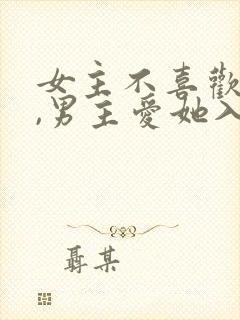 女主不喜歡
,男主愛她入
聶某